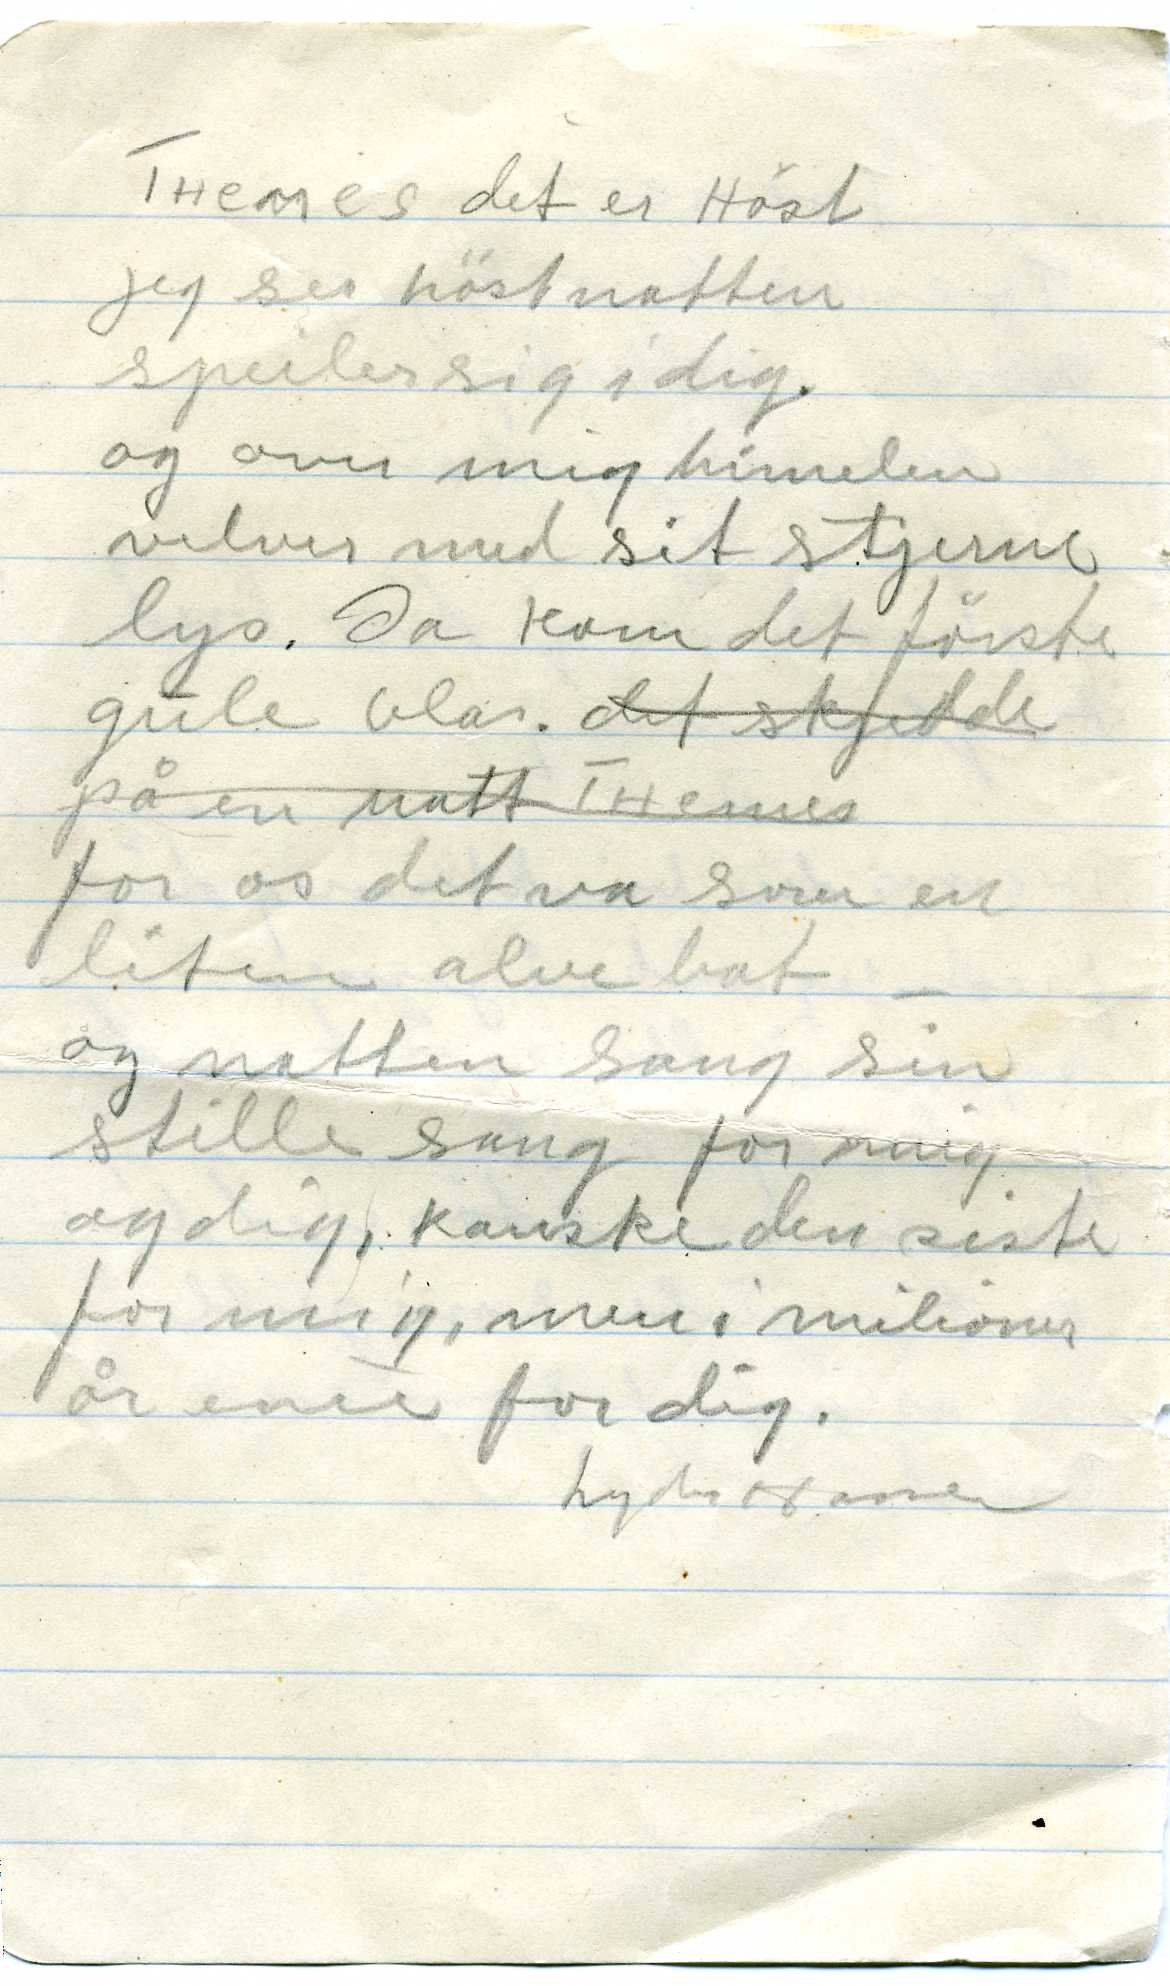 Themes det er Höst
jeg ser höstnatten
speiler sig i dig.
og over mig himelen
velver med sit stjerne
lys. Da kom det förste
gule blar. det skjedde
på en natt Themes
for os det va som en
liten alve bat _
og natten sang sin
stille sang for mig
og dig, kanske den siste
for mig, men i milioner
år for dig.